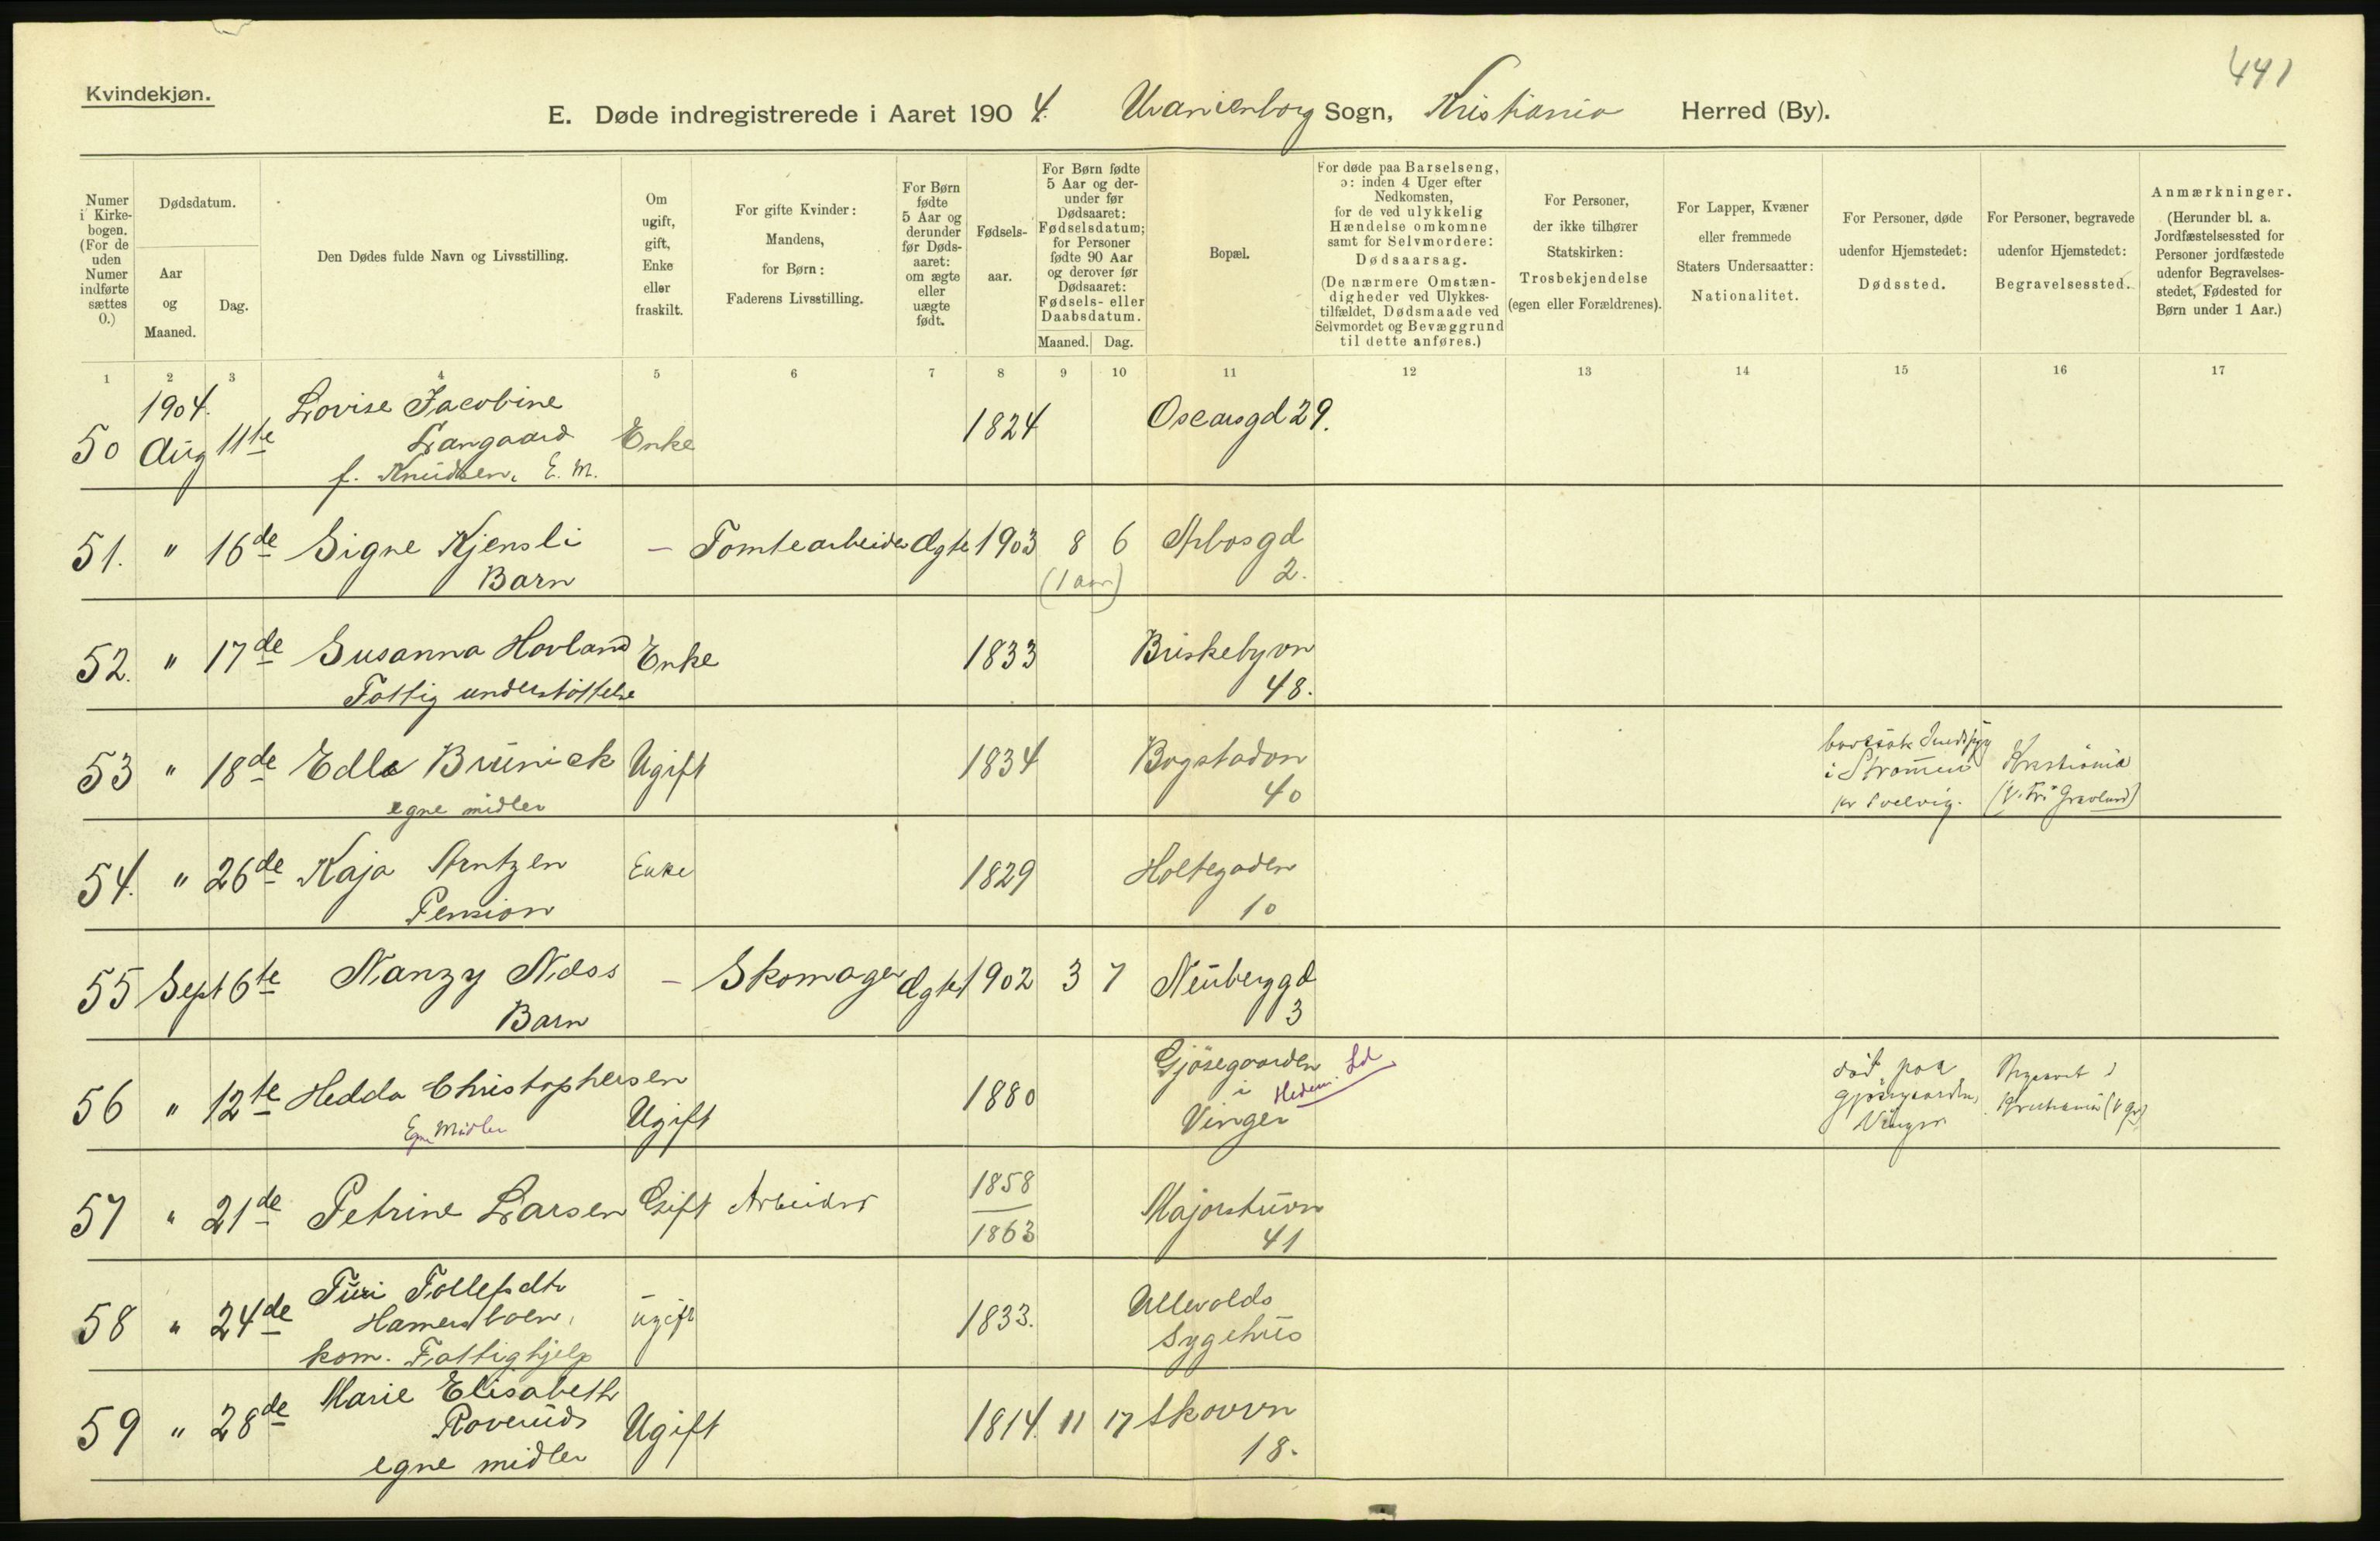 441
Kvindekjøn.
E. Døde indregistrerede i Aaret 1904. Uranienborg Sogn, Kristiania Herred (By).
Numer i Kirke-bogen. (For de uden Numer indførte sættes 0.)
Dødsdatum.
Aar og Maaned.
Dag.
Den Dødes fulde Navn og Livsstilling.
Om ugift, gift, Enke eller fraskilt.
For gifte Kvinder: Mandens, for Børn: Faderens Livsstilling.
For Børn fødte 5 Aar og derunder før Døds-aaret: om ægte eller uægte født.
Fødsels-aar.
For Børn fødte 5 Aar og der-under før Dødsaaret: Fødselsdatum; for Personer fødte 90 Aar og derover før Dødsaaret: Fødsels- eller Daabsdatum.
Maaned. Dag.
Bopæl.
For døde paa Barselseng, ɔ: inden 4 Uger efter Nedkomsten, for de ved ulykkelig Hændelse omkomne samt for Selvmordere: Dødsaarsag. (De nærmere Omstæn-digheder ved Ulykkes-tilfældet, Dødsmaade ved Selvmordet og Bevæggrund til dette anføres.)
For Personer, der ikke tilhører Statskirken: Trosbekjendelse (egen eller Forældrenes).
For Lapper, Kvæner eller fremmede Staters Undersaatter: Nationalitet.
For Personer, døde udenfor Hjemstedet: Dødssted.
For Personer, begravede udenfor Hjemstedet: Begravelsessted.
Anmærkninger. (Herunder bl. a. Jordfæstelsessted for Personer jordfæstede udenfor Begravelses-stedet, Fødested for Børn under 1 Aar.)
1 2 3 4 5 6 7 8 9 10 11 12 13 14 15 16 17
1904. Lovise Jacobine
50 Aug 11te Langaard Enke 1824 Oscarsgd 29.
f. Knudsen. E. M.
51. " 16de Signe Kjensli – Tomtearbeider Ægte 1903 8 6 Arbosgd
Barn (1 aar) 2.
52. " 17de Susanna Hovland Enke 1833 Briskebyvn
Fattig understöttelse 48.
53 " 18de Edle Brünick Ugift 1834 Bogstadvn
egne midler 40
i Strømmen
pr Svelvig.
Kristiania
(V. Fr's Gravlund)
54. " 26de Kaja Arntzen Enke 1829 Holtegaden
Pension 10
55 Sept 6te Nanzy Næss – Skomager Ægte 1902 3 7 Neuberggd
Barn 3
56 " 12te Hedda Christophersen Ugift 1880 Gjøsegaarden
i
Vinger
Hedem.
Egne Midler
död paa
Gjøsegaarden,
Vinger
Kristiania (V Gr)
57 " 21de Petrine Larsen Gift Arbeider 1858
1863
Majorstuvn
41
58 " 24de Turi Tollefsdtr
Hamersboen, ugift 1833. Ullevolds
Sygehus
kom. Fattighjelp
59 " 28de Marie Elisabeth
Roverud Ugift 1814. 11 17 Skovvn
egne midler 18.